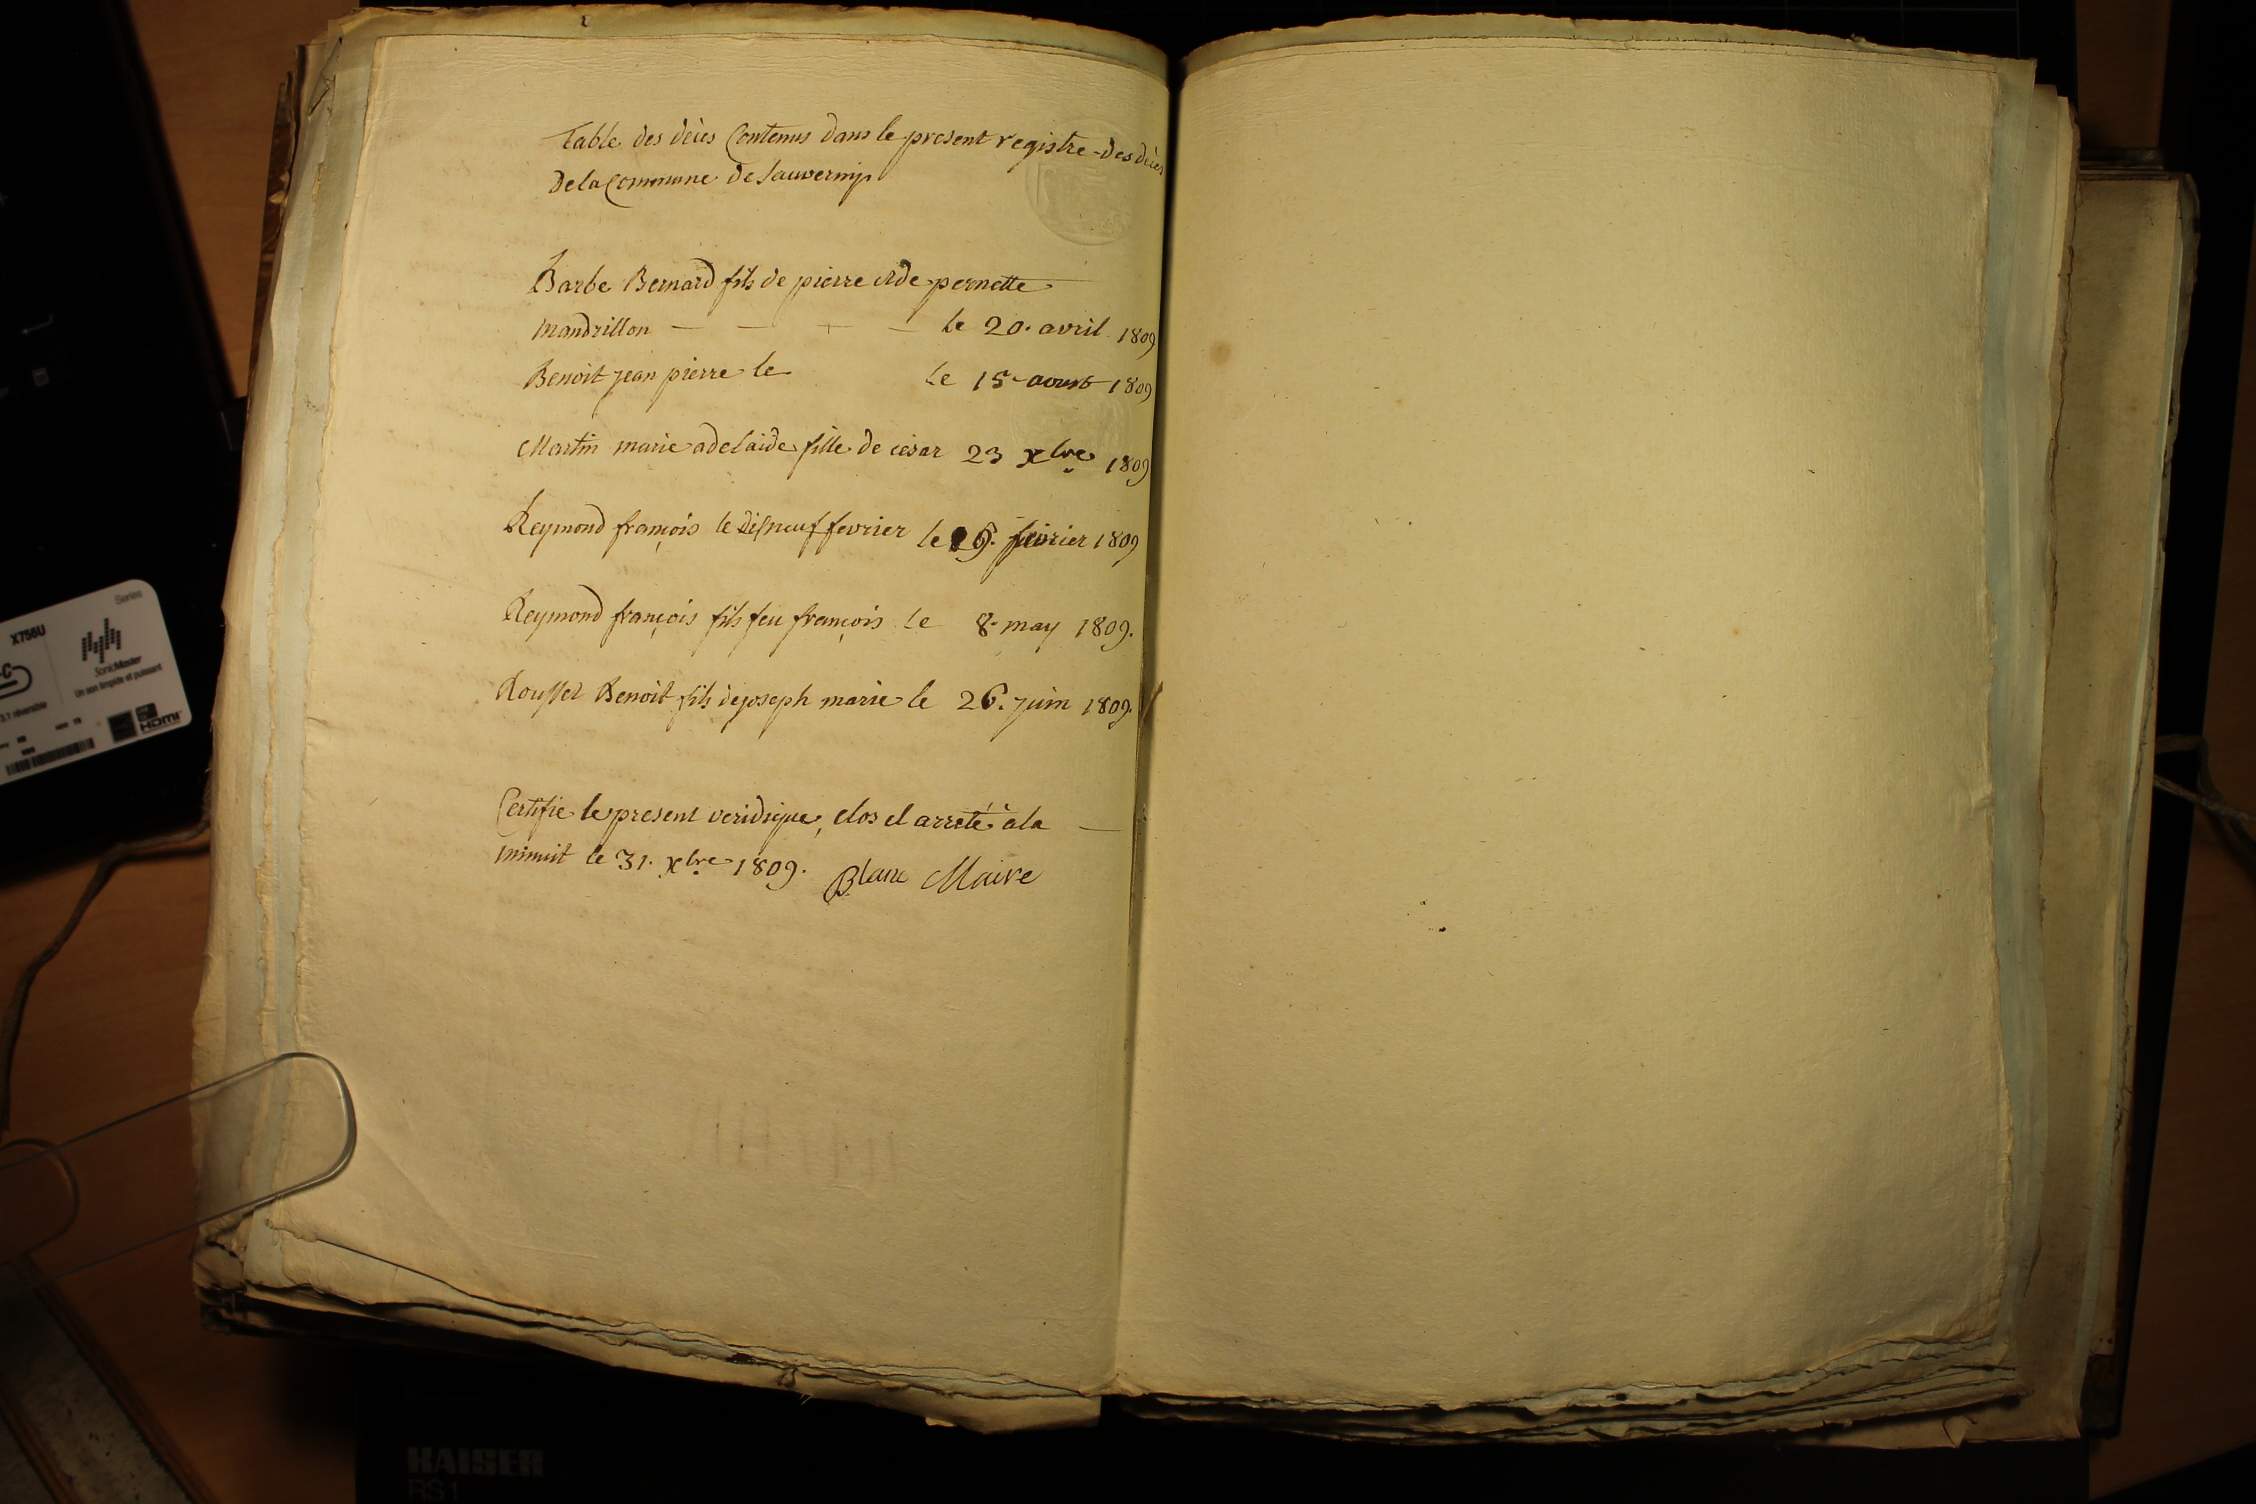 Table des décès Contenus dans le present registre des décès
De la Commune de Sauverny
Barbe Bernard fils de pierre et de pernette
mandrillon le 20. avril 1809
Benoit jean pierre le le 15 aoust 1809
Martin marie adelaide fille de cesar 23 xbre 1809
Reymond françois le dis neuf fevrier le 19. fevrier 1809
Reymond françois fils feu françois le 8. may 1809.
Rousset Benoit fils de joseph marie le 26. juin 1809.
Certifie le present veridique, clos et arreté à la
minuit le 31. xbre 1809. Blanc Maire
X756U
Series
SonicMaster
Un son limpide et puissant
3.1 réversible
HDMI
KAISER
RS 1